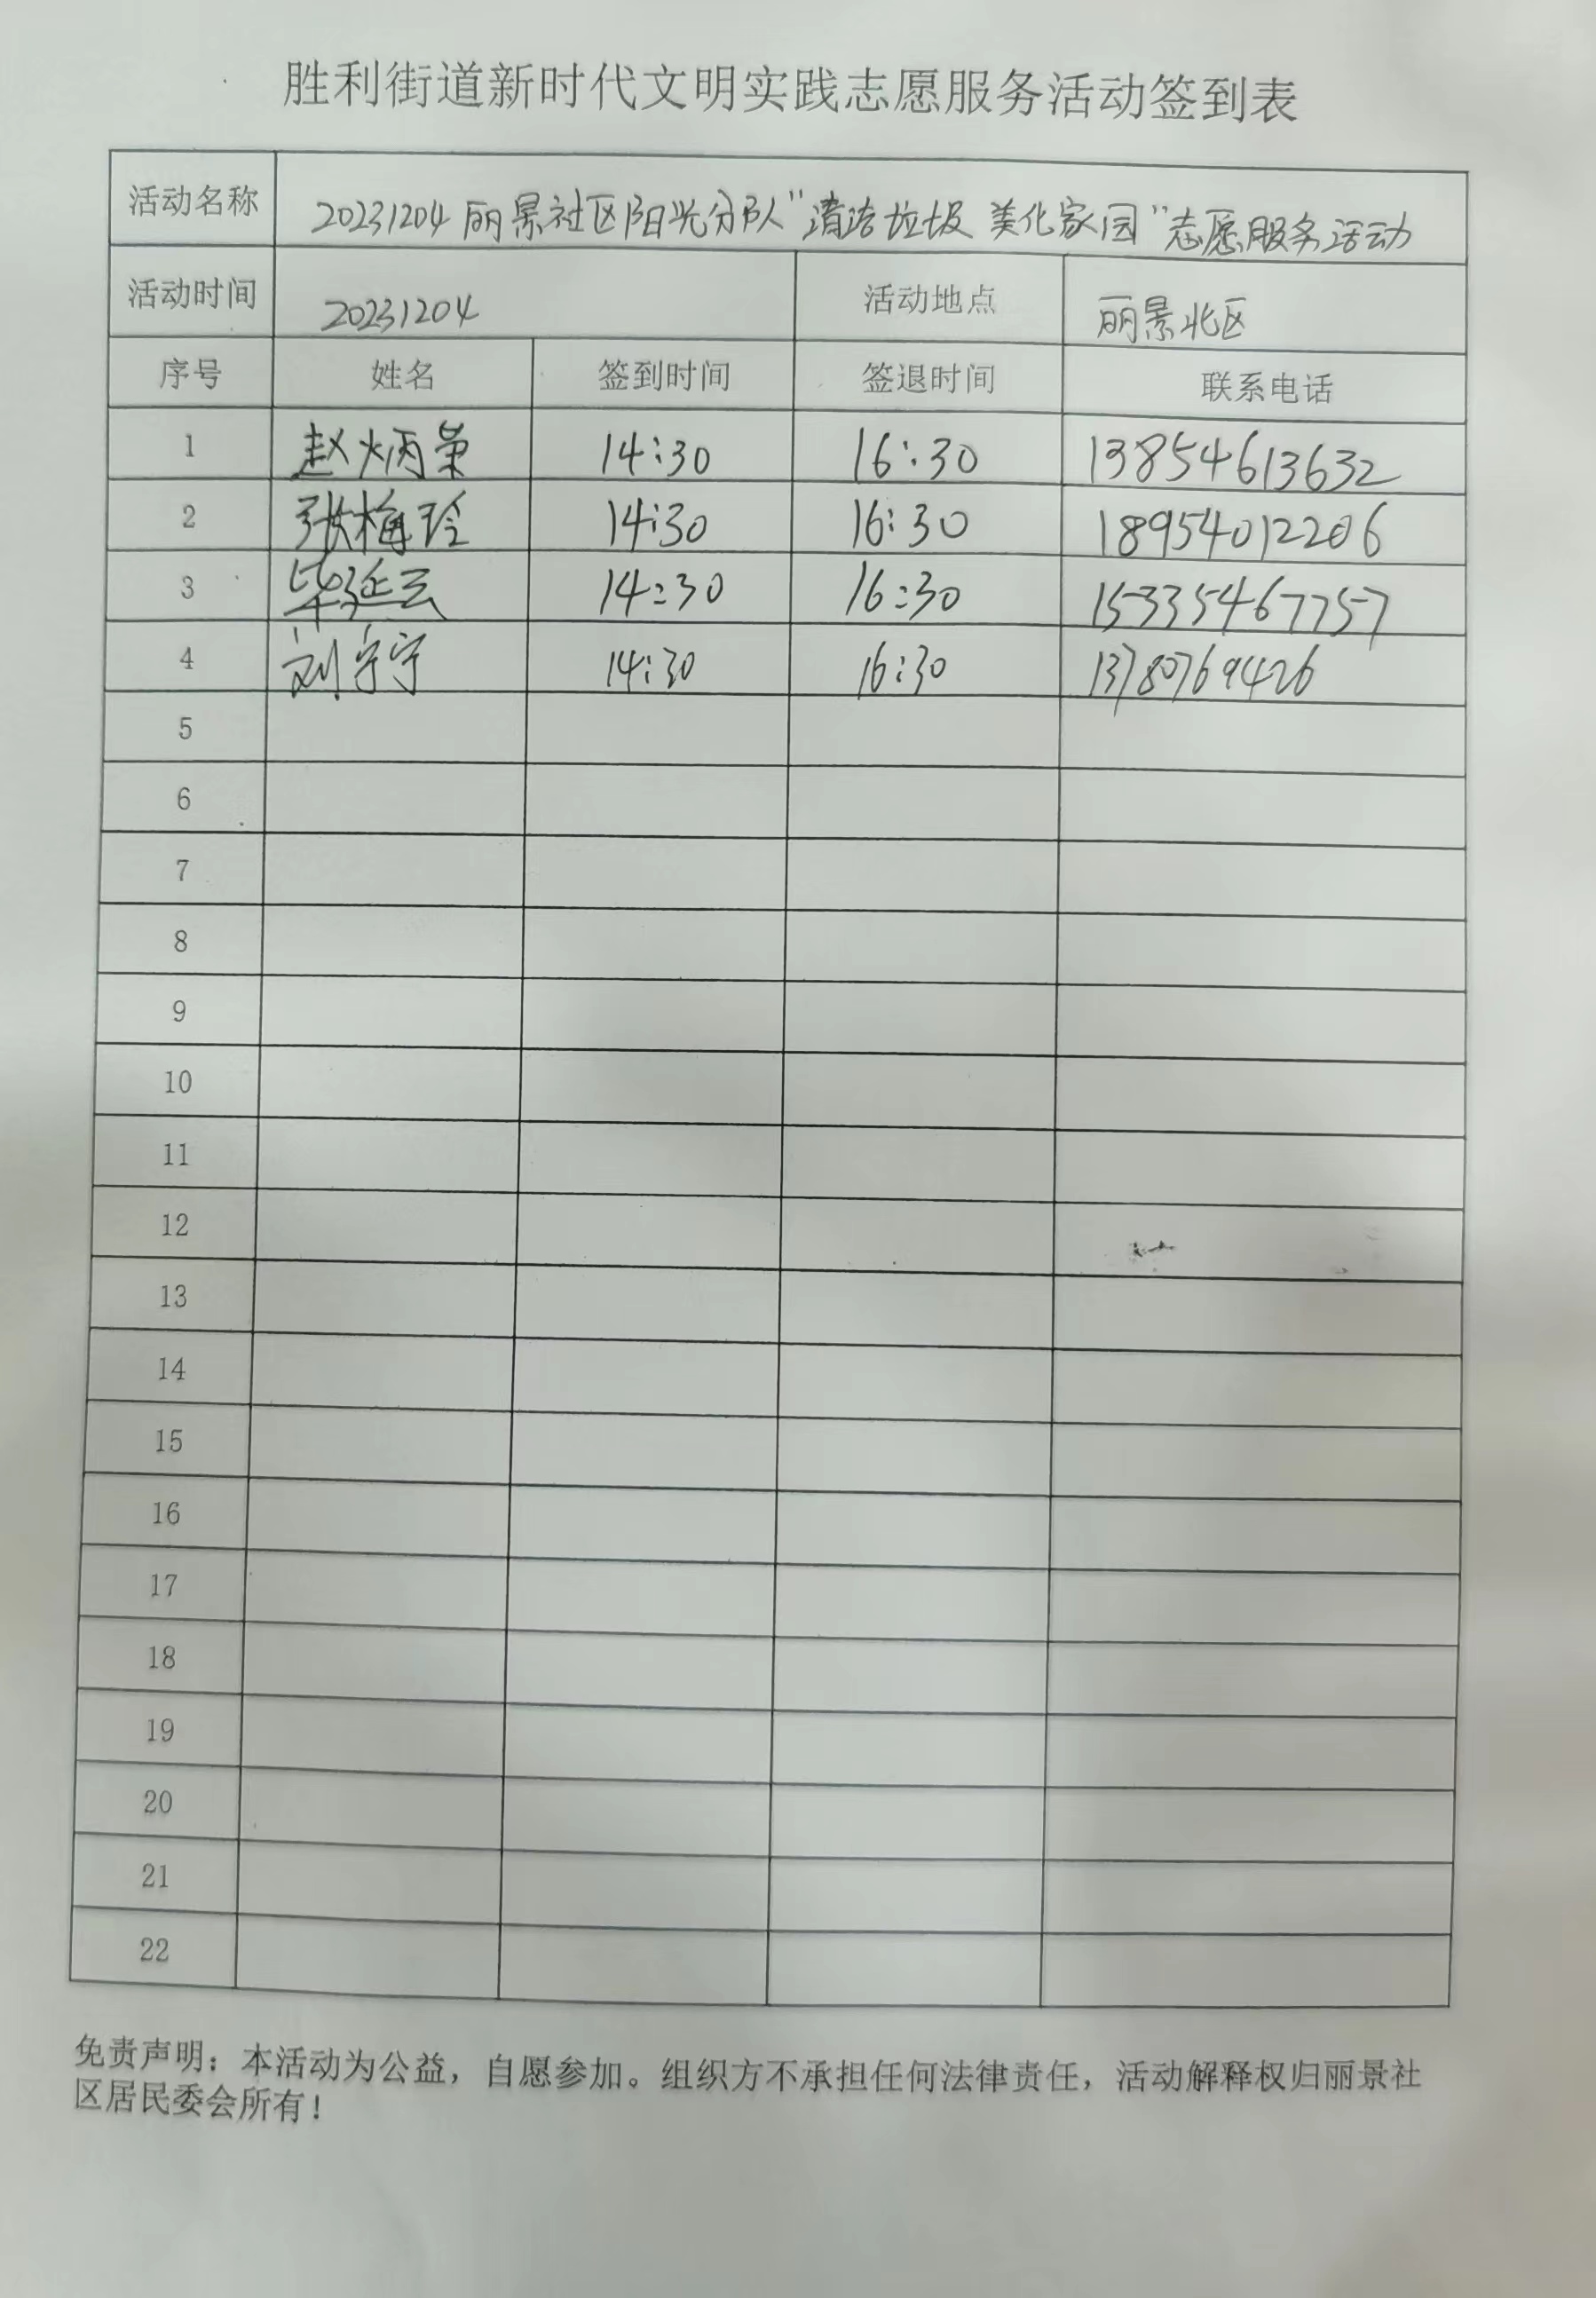 胜利街道新时代文明实践志愿服务活动签到表
活动名称 20231204丽景社区阳光分队"清洁垃圾 美化家园"志愿服务活动
活动时间 20231204 活动地点 丽景北区
序号 姓名 签到时间 签退时间 联系电话
1 赵炳荣 14:30 16:30 13854613632
2 张梅玲 14:30 16:30 18954012206
3 毕延云 14:30 16:30 15335467757
4 刘宁宁 14:30 16:30 13780769426
5
6
7
8
9
10
11
12
13
14
15
16
17
18
19
20
21
22
免责声明：本活动为公益，自愿参加。组织方不承担任何法律责任，活动解释权归丽景社
区居民委会所有！